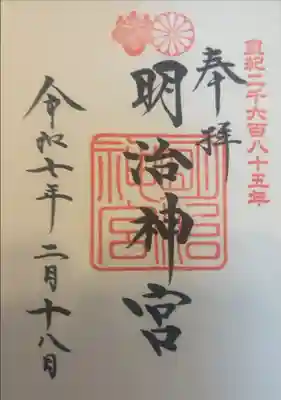 皇紀二千六百八十五年
奉拝
明治神宮
明治神宮
令和七年 二月十八日